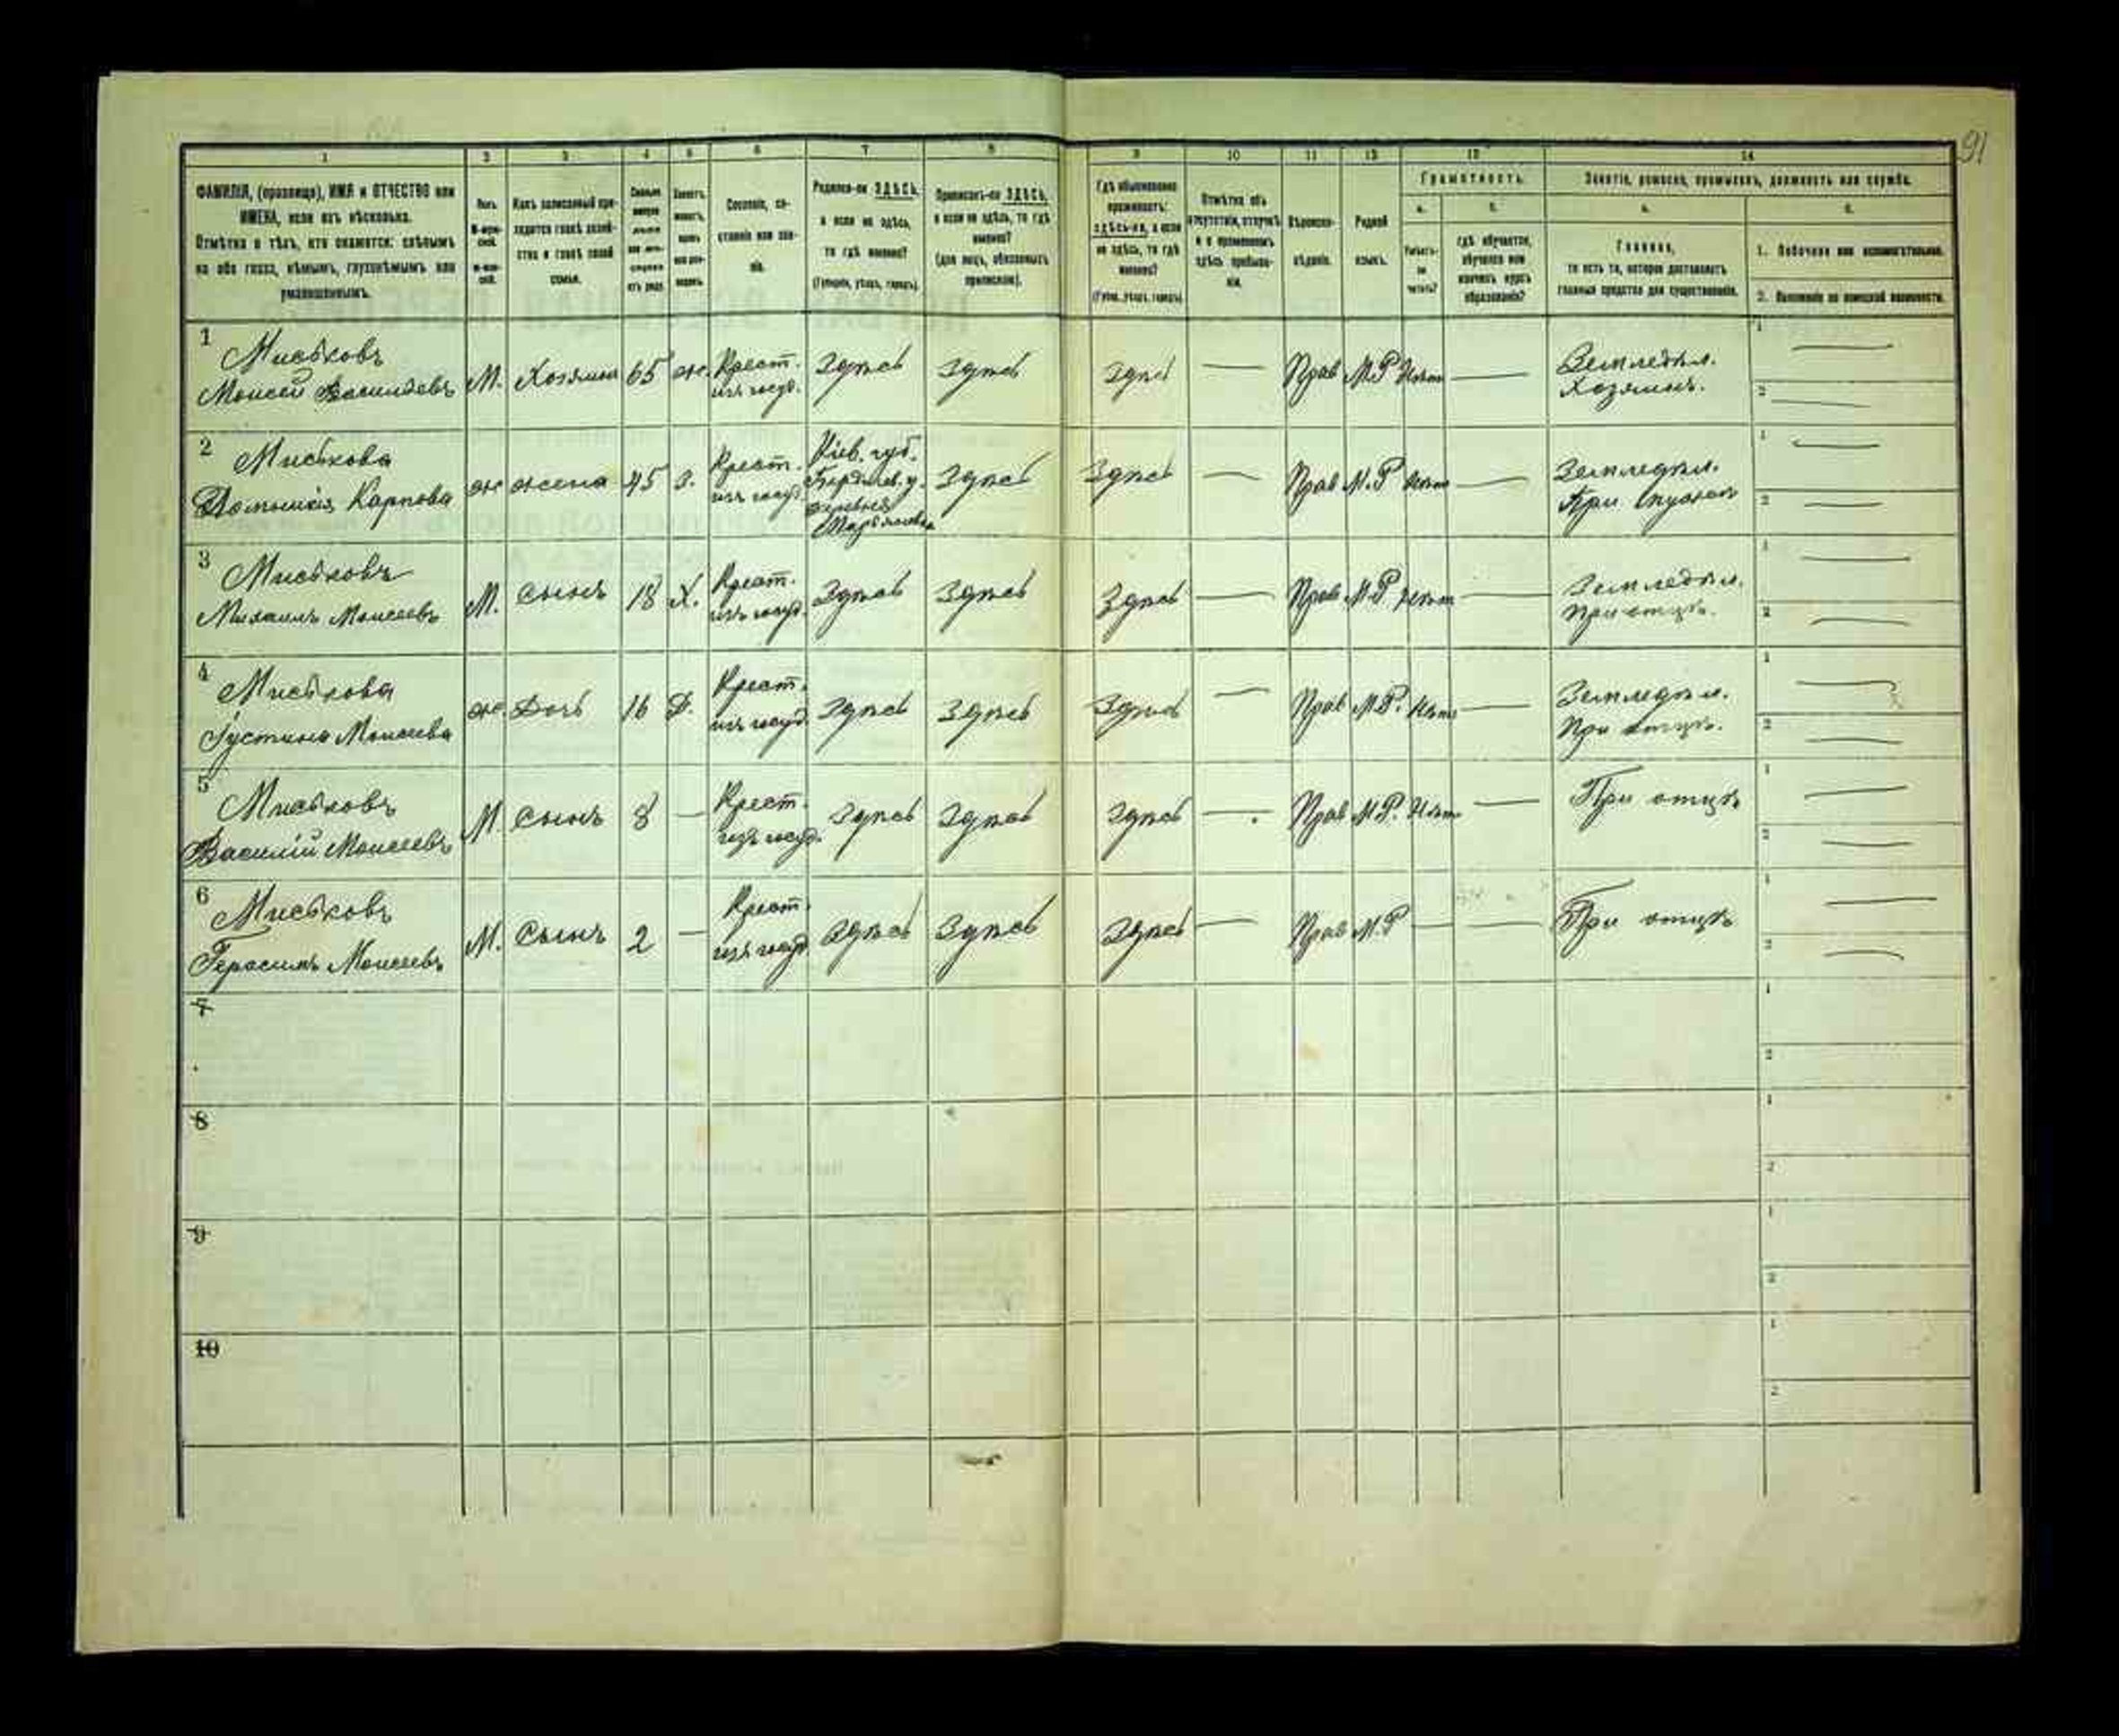 91
1 2 3 4 5 6 7 8 9 10 11 12 13 14
ФАМИЛІЯ, (прозвище), ИМЯ и ОТЧЕСТВО или
ИМЕНА, если ихъ нѣсколько.
Отмѣтка о тѣхъ, кто окажется: слѣпымъ
на оба глаза, нѣмымъ, глухонѣмымъ или
умалишеннымъ.
Полъ
Какъ записанный при-
ходится главѣ хозяй-
ства и главѣ своей
семьи.
Сословіе, со-
стояніе или зва-
ніе.
Родился-ли ЗДѢСЬ,
а если не здѣсь,
то гдѣ именно?
(Губернія, уѣздъ, городъ).
Приписанъ-ли ЗДѢСЬ,
а если не здѣсь, то гдѣ
именно?
(для лицъ, обязанныхъ
припискою).
Гдѣ обыкновенно
проживаетъ:
здѣсь-ли, а если
не здѣсь, то гдѣ
именно?
(Губер., уѣздъ, городъ).
Отмѣтка объ
отсутствіи, отлучкѣ
и о временномъ
здѣсь пребыва-
ніи.
Вѣроиспо-
вѣданіе.
Родной
языкъ.
Грамотность.
а.
Умѣетъ-
ли
читать?
б.
гдѣ обучается,
обучался или
кончилъ курсъ
образованія?
Занятіе, ремесло, промыселъ, должность или служба.
а.
Главное,
то есть то, которое доставляетъ
главныя средства для существованія.
б.
1. Побочное или вспомогательное.
2. Положеніе по воинской повинности.
1
Моисей Васильевъ М. Хозяинъ 65 ж. Крест. Здѣсь Здѣсь Здѣсь — Прав М.Р Нѣтъ — Земледѣл.
изъ госуд. Хозяинъ.
2
Карпова ж жена 45 З. Крест. Кіев. губ. Здѣсь Здѣсь — Прав М.Р Нѣтъ — Земледѣл.
изъ госуд. Бердичев. у. При
деревня
3
Михаилъ Моисеевъ М. сынъ 18 Х. Крест. Здѣсь Здѣсь Здѣсь — Прав М.Р Нѣтъ — Земледѣл.
изъ госуд. При отцѣ.
4
Іустина Моисеева ж. Дочь 16 Д. Крест. Здѣсь Здѣсь Здѣсь — Прав М.Р. Нѣтъ — Земледѣл.
изъ госуд. При отцѣ.
5
Василій Моисеевъ М. Сынъ 8 — Крест. Здѣсь Здѣсь Здѣсь — Прав М.Р. Нѣтъ — При отцѣ
изъ госуд.
6
Герасимъ Моисеевъ М. Сынъ 2 — Крест. Здѣсь Здѣсь Здѣсь — Прав М.Р — — При отцѣ
изъ госуд.
7
8
9
10